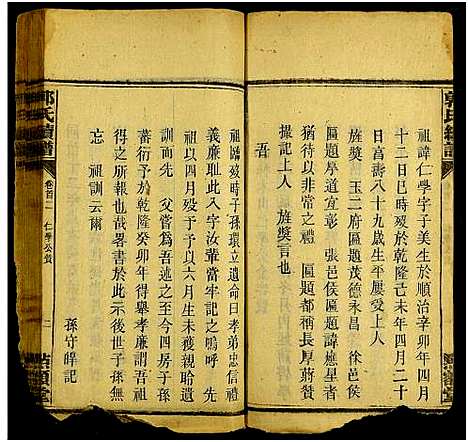 祖諱仁學字子美生於順治辛卯年四月
十二日巳時歿於乾隆己未年四月二十
日亯壽八十九歳生平屢受上
旌獎 玉二府區題茂德永昌 徐邑侯
區題導道宜彰 張邑侯區題諱應星者
猶待以非常之禮 區題都稱長厚蔣贊
撮記上人 旌獎言也
吾
祖臨歿時子孫環立遺命曰孝弟忠信禮
義廉耻此八字汝輩當牢記之嗚呼 先
祖以四月歿予以六月生未獲親聆遺
訓而先 父嘗爲吾述之至今四房子孫
蕃衍予於乾隆癸卯年得舉孝廉謂吾祖
之所報也哉畧書於此示後世子孫無
忘 祖訓云爾
孫守𤯝記
郭氏續譜
卷首二 仁學公贊
二
郭氏續譜